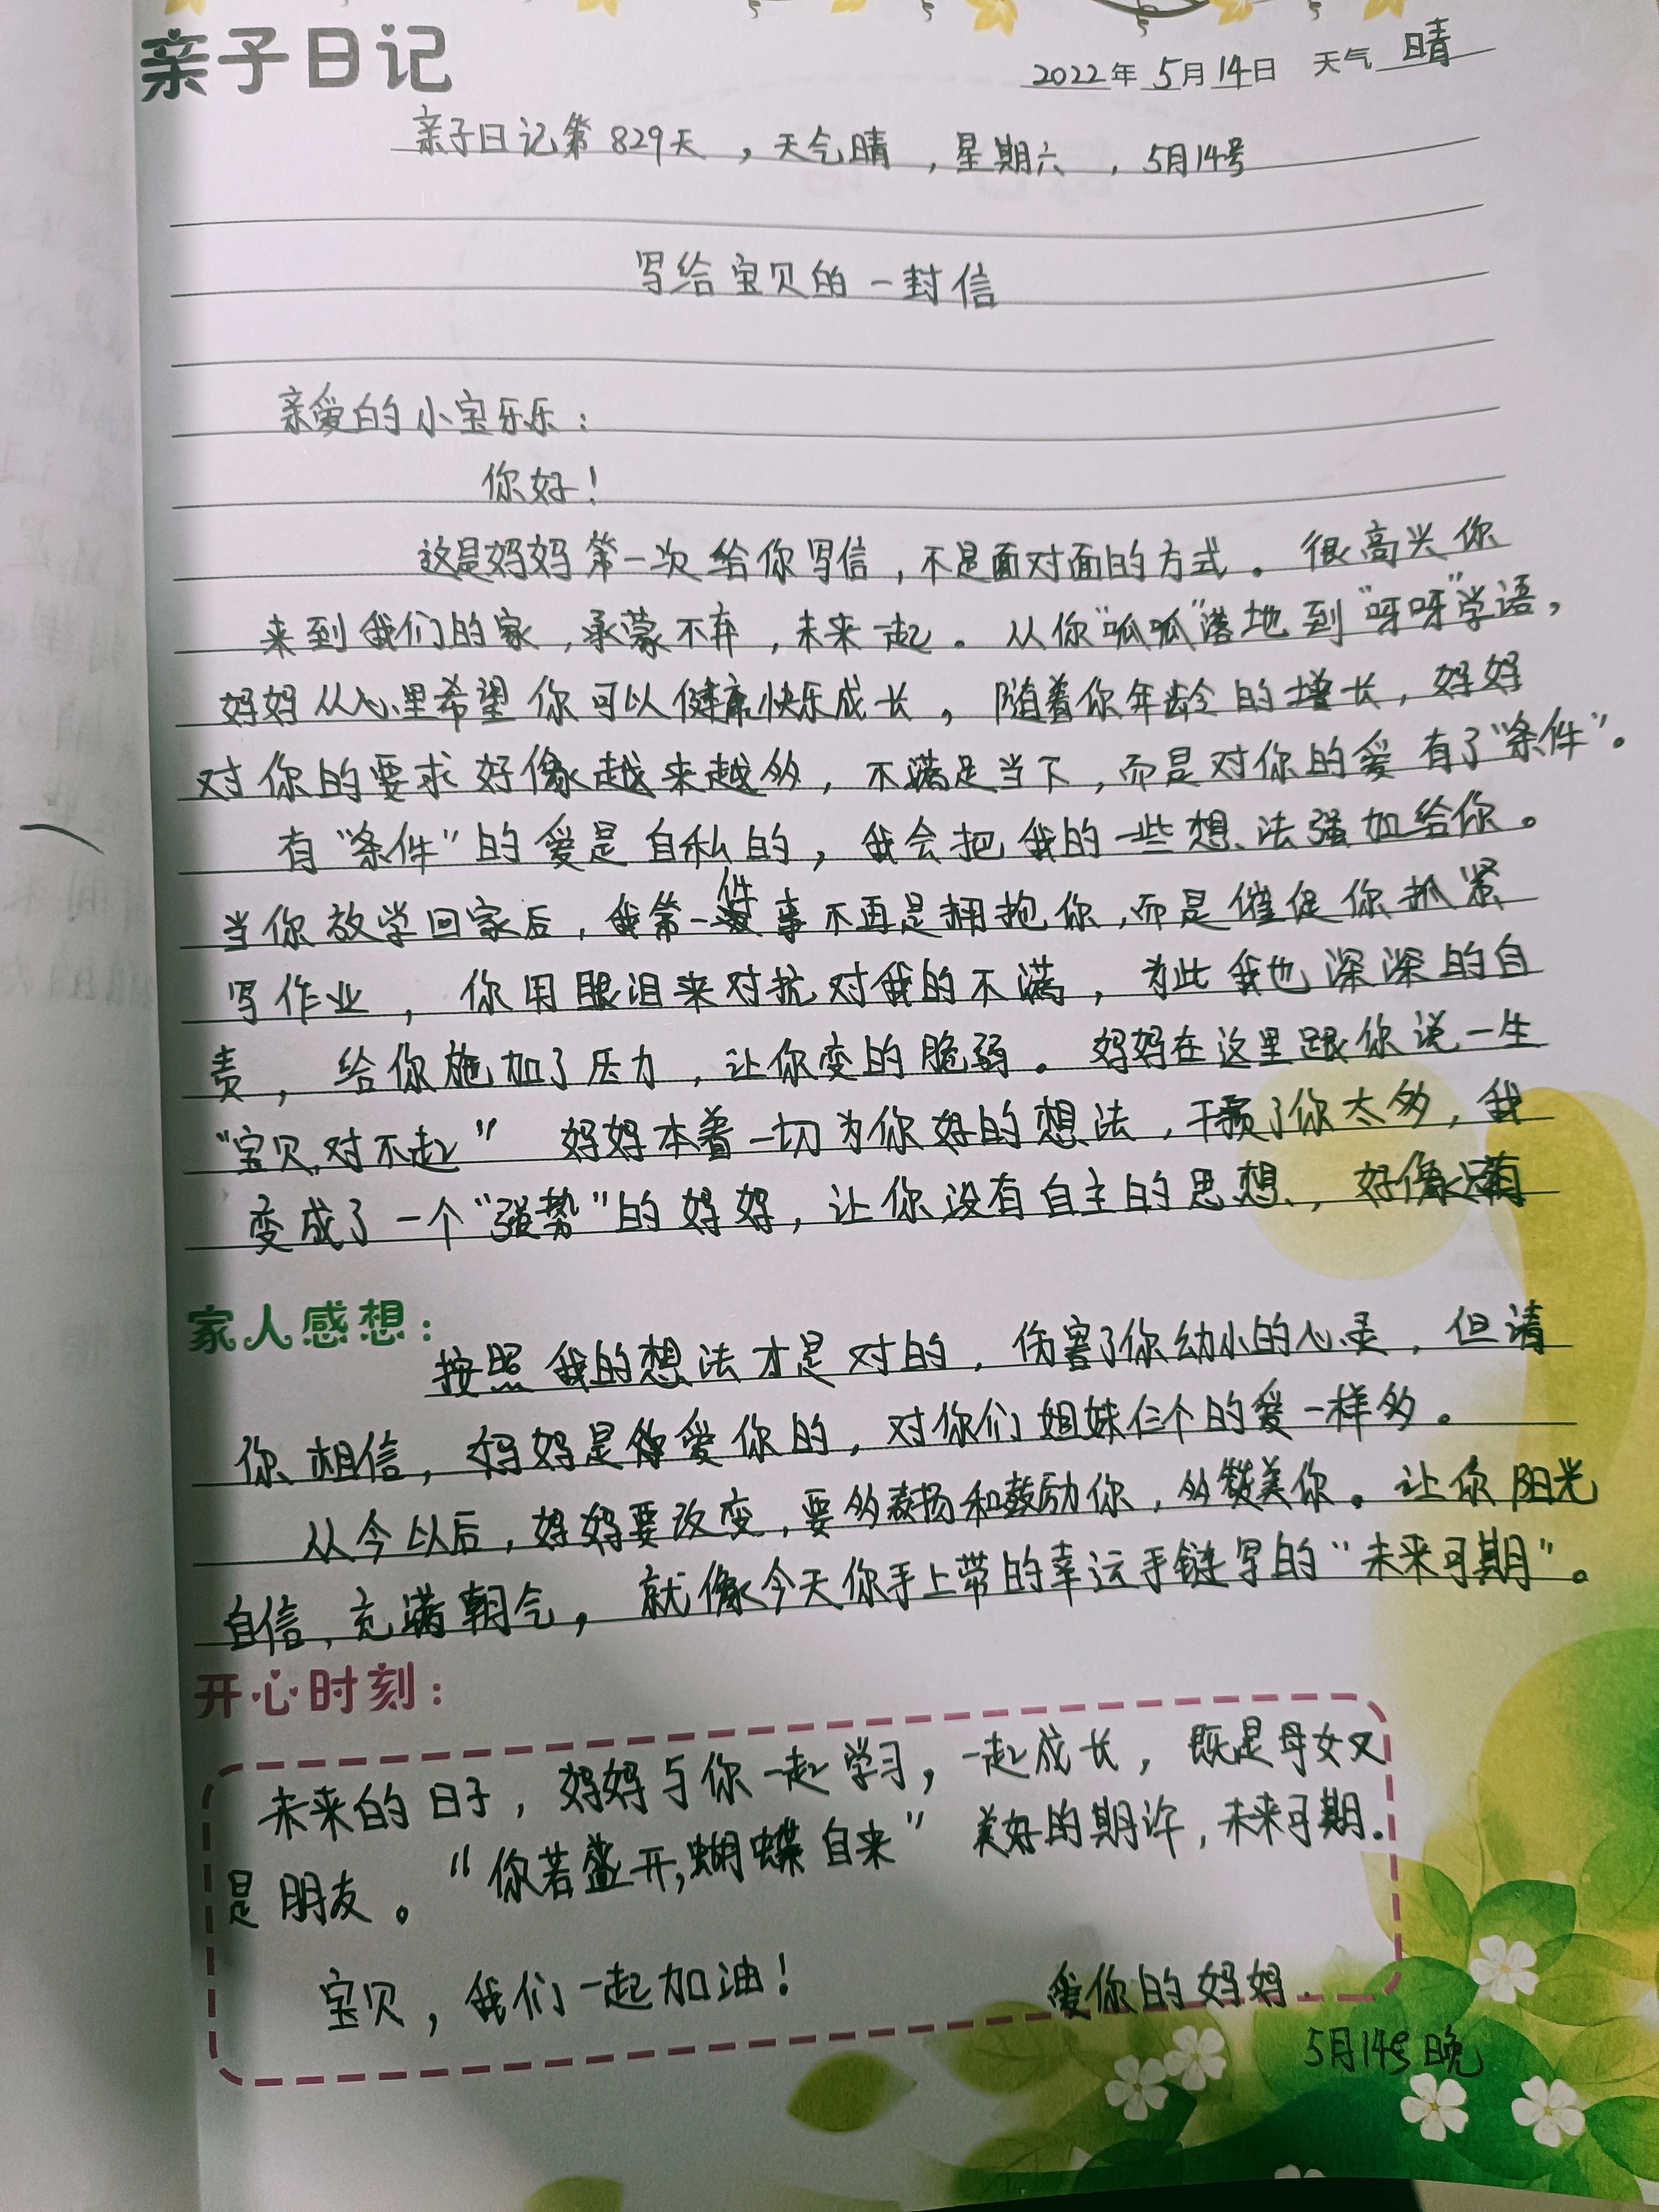 亲子日记
2022年5月14日 天气 晴
亲子日记第829天，天气晴，星期六，5月14号
写给宝贝的一封信
亲爱的小宝乐乐：
你好！
这是妈妈第一次给你写信，不是面对面的方式。很高兴你
来到我们的家，承蒙不弃，未来一起。从你"呱呱"落地到"呀呀"学语，
妈妈从心里希望你可以健康快乐成长，随着你年龄的增长，妈妈
对你的要求好像越来越多，不满足当下，而是对你的爱有了"条件"。
有"条件"的爱是自私的，我会把我的一些想法强加给你。
当你放学回家后，我第一件事不再是拥抱你，而是催促你抓紧
写作业，你用眼泪来对抗对我的不满，为此我也深深的自
责，给你施加了压力，让你变的脆弱。妈妈在这里跟你说一生
"宝贝，对不起"妈妈本着一切为你好的想法，干预了你太多，我
变成了一个"强势"的妈妈，让你没有自主的思想，好像只有
家人感想：
按照我的想法才是对的，伤害了你幼小的心灵，但请
你相信，妈妈是爱你的，对你们姐妹仨个的爱一样多。
从今以后，妈妈要改变，要多表扬和鼓励你，多赞美你。让你阳光
自信，充满朝气，就像今天你手上带的幸运手链写的"未来可期"。
开心时刻：
未来的日子，妈妈与你一起学习，一起成长，既是母女又
是朋友。"你若盛开，蝴蝶自来"美好的期许，未来可期.
宝贝，我们一起加油！
爱你的妈妈.
5月14号晚